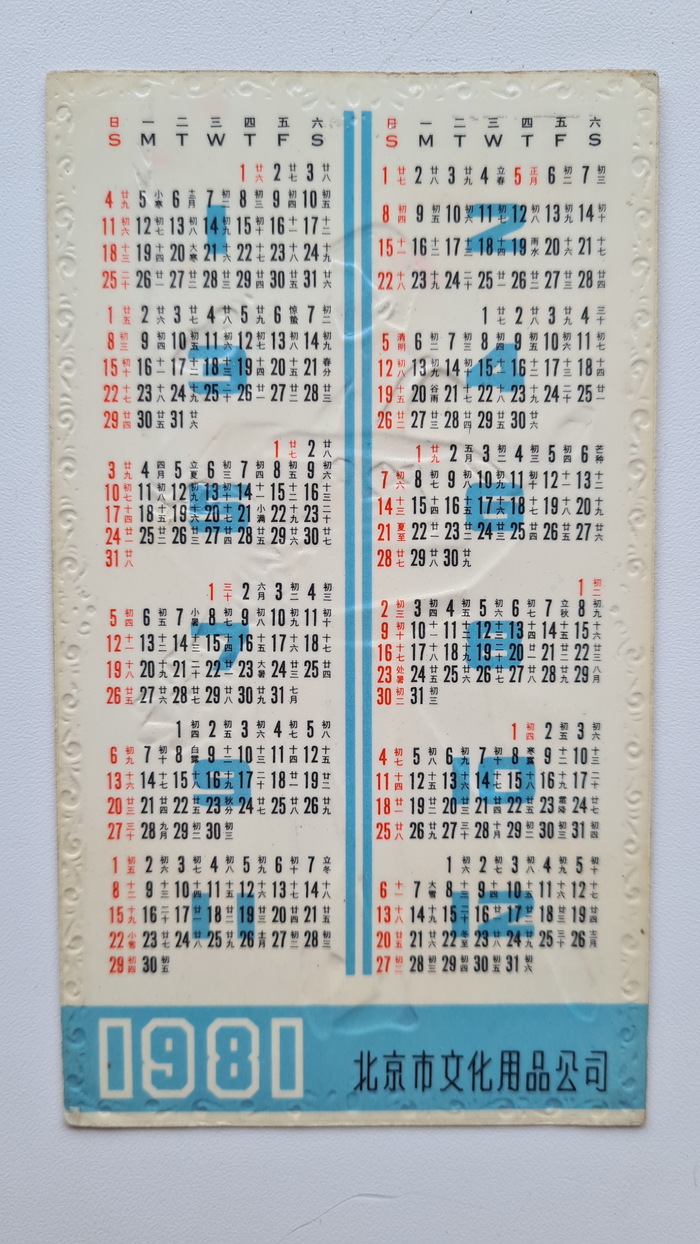 日 一 二 三 四 五 六
S M T W T F S
1
1廿六 2廿七 3廿八
4廿九 5小寒 6十二月 7初二 8初三 9初四 10初五
11初六 12初七 13初八 14初九 15初十 16十一 17十二
18十三 19十四 20大寒 21十六 22十七 23十八 24十九
25二十 26廿一 27廿二 28廿三 29廿四 30廿五 31廿六
日 一 二 三 四 五 六
S M T W T F S
2
1廿七 2廿八 3廿九 4立春 5正月 6初二 7初三
8初四 9初五 10初六 11初七 12初八 13初九 14初十
15十一 16十二 17十三 18十四 19雨水 20十六 21十七
22十八 23十九 24二十 25廿一 26廿二 27廿三 28廿四
3
1廿五 2廿六 3廿七 4廿八 5廿九 6惊蛰 7初二
8初三 9初四 10初五 11初六 12初七 13初八 14初九
15初十 16十一 17十二 18十三 19十四 20十五 21春分
22十七 23十八 24十九 25二十 26廿一 27廿二 28廿三
29廿四 30廿五 31廿六
4
1廿七 2廿八 3廿九 4三十
5清明 6初二 7初三 8初四 9初五 10初六 11初七
12初八 13初九 14初十 15十一 16十二 17十三 18十四
19十五 20谷雨 21十七 22十八 23十九 24二十 25廿一
26廿二 27廿三 28廿四 29廿五 30廿六
5
1廿七 2廿八
3廿九 4四月 5立夏 6初三 7初四 8初五 9初六
10初七 11初八 12初九 13初十 14十一 15十二 16十三
17十四 18十五 19十六 20十七 21小满 22十九 23二十
24廿一 25廿二 26廿三 27廿四 28廿五 29廿六 30廿七
31廿八
6
1廿九 2五月 3初二 4初三 5初四 6芒种
7初六 8初七 9初八 10初九 11初十 12十一 13十二
14十三 15十四 16十五 17十六 18十七 19十八 20十九
21夏至 22廿一 23廿二 24廿三 25廿四 26廿五 27廿六
28廿七 29廿八 30廿九
7
1三十 2六月 3初二 4初三
5初四 6初五 7小暑 8初七 9初八 10初九 11初十
12十一 13十二 14十三 15十四 16十五 17十六 18十七
19十八 20十九 21二十 22廿一 23大暑 24廿三 25廿四
26廿五 27廿六 28廿七 29廿八 30廿九 31七月
8
1初二
2初三 3初四 4初五 5初六 6初七 7立秋 8初九
9初十 10十一 11十二 12十三 13十四 14十五 15十六
16十七 17十八 18十九 19二十 20廿一 21廿二 22廿三
23处暑 24廿五 25廿六 26廿七 27廿八 28廿九 29八月
30初二 31初三
9
1初四 2初五 3初六 4初七 5初八
6初九 7初十 8白露 9十二 10十三 11十四 12十五
13十六 14十七 15十八 16十九 17二十 18廿一 19廿二
20廿三 21廿四 22廿五 23秋分 24廿七 25廿八 26廿九
27三十 28九月 29初二 30初三
10
1初四 2初五 3初六
4初七 5初八 6初九 7初十 8寒露 9十二 10十三
11十四 12十五 13十六 14十七 15十八 16十九 17二十
18廿一 19廿二 20廿三 21廿四 22廿五 23霜降 24廿七
25廿八 26廿九 27三十 28十月 29初二 30初三 31初四
11
1初五 2初六 3初七 4初八 5初九 6初十 7立冬
8十二 9十三 10十四 11十五 12十六 13十七 14十八
15十九 16二十 17廿一 18廿二 19廿三 20廿四 21廿五
22小雪 23廿七 24廿八 25廿九 26十一月 27初二 28初三
29初四 30初五
12
1初六 2初七 3初八 4初九 5初十
6十一 7大雪 8十三 9十四 10十五 11十六 12十七
13十八 14十九 15二十 16廿一 17廿二 18廿三 19廿四
20廿五 21廿六 22冬至 23廿八 24廿九 25三十 26十二月
27初二 28初三 29初四 30初五 31初六
1981
北京市文化用品公司